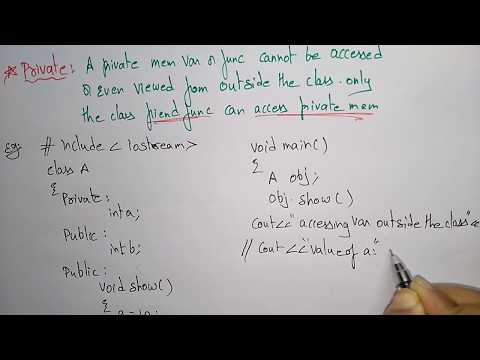 * Private: A private mem var & func cannot be accessed
& even viewed from outside the class. only
the class friend func can access private mem
eg:
# Include < iostream>
class A
{
Private:
int a;
Public:
int b;
Public:
void show()
{
void main()
{
A obj;
obj. show()
Cout<<"accessing var outside the class"<
// Cout <<"value of a:"